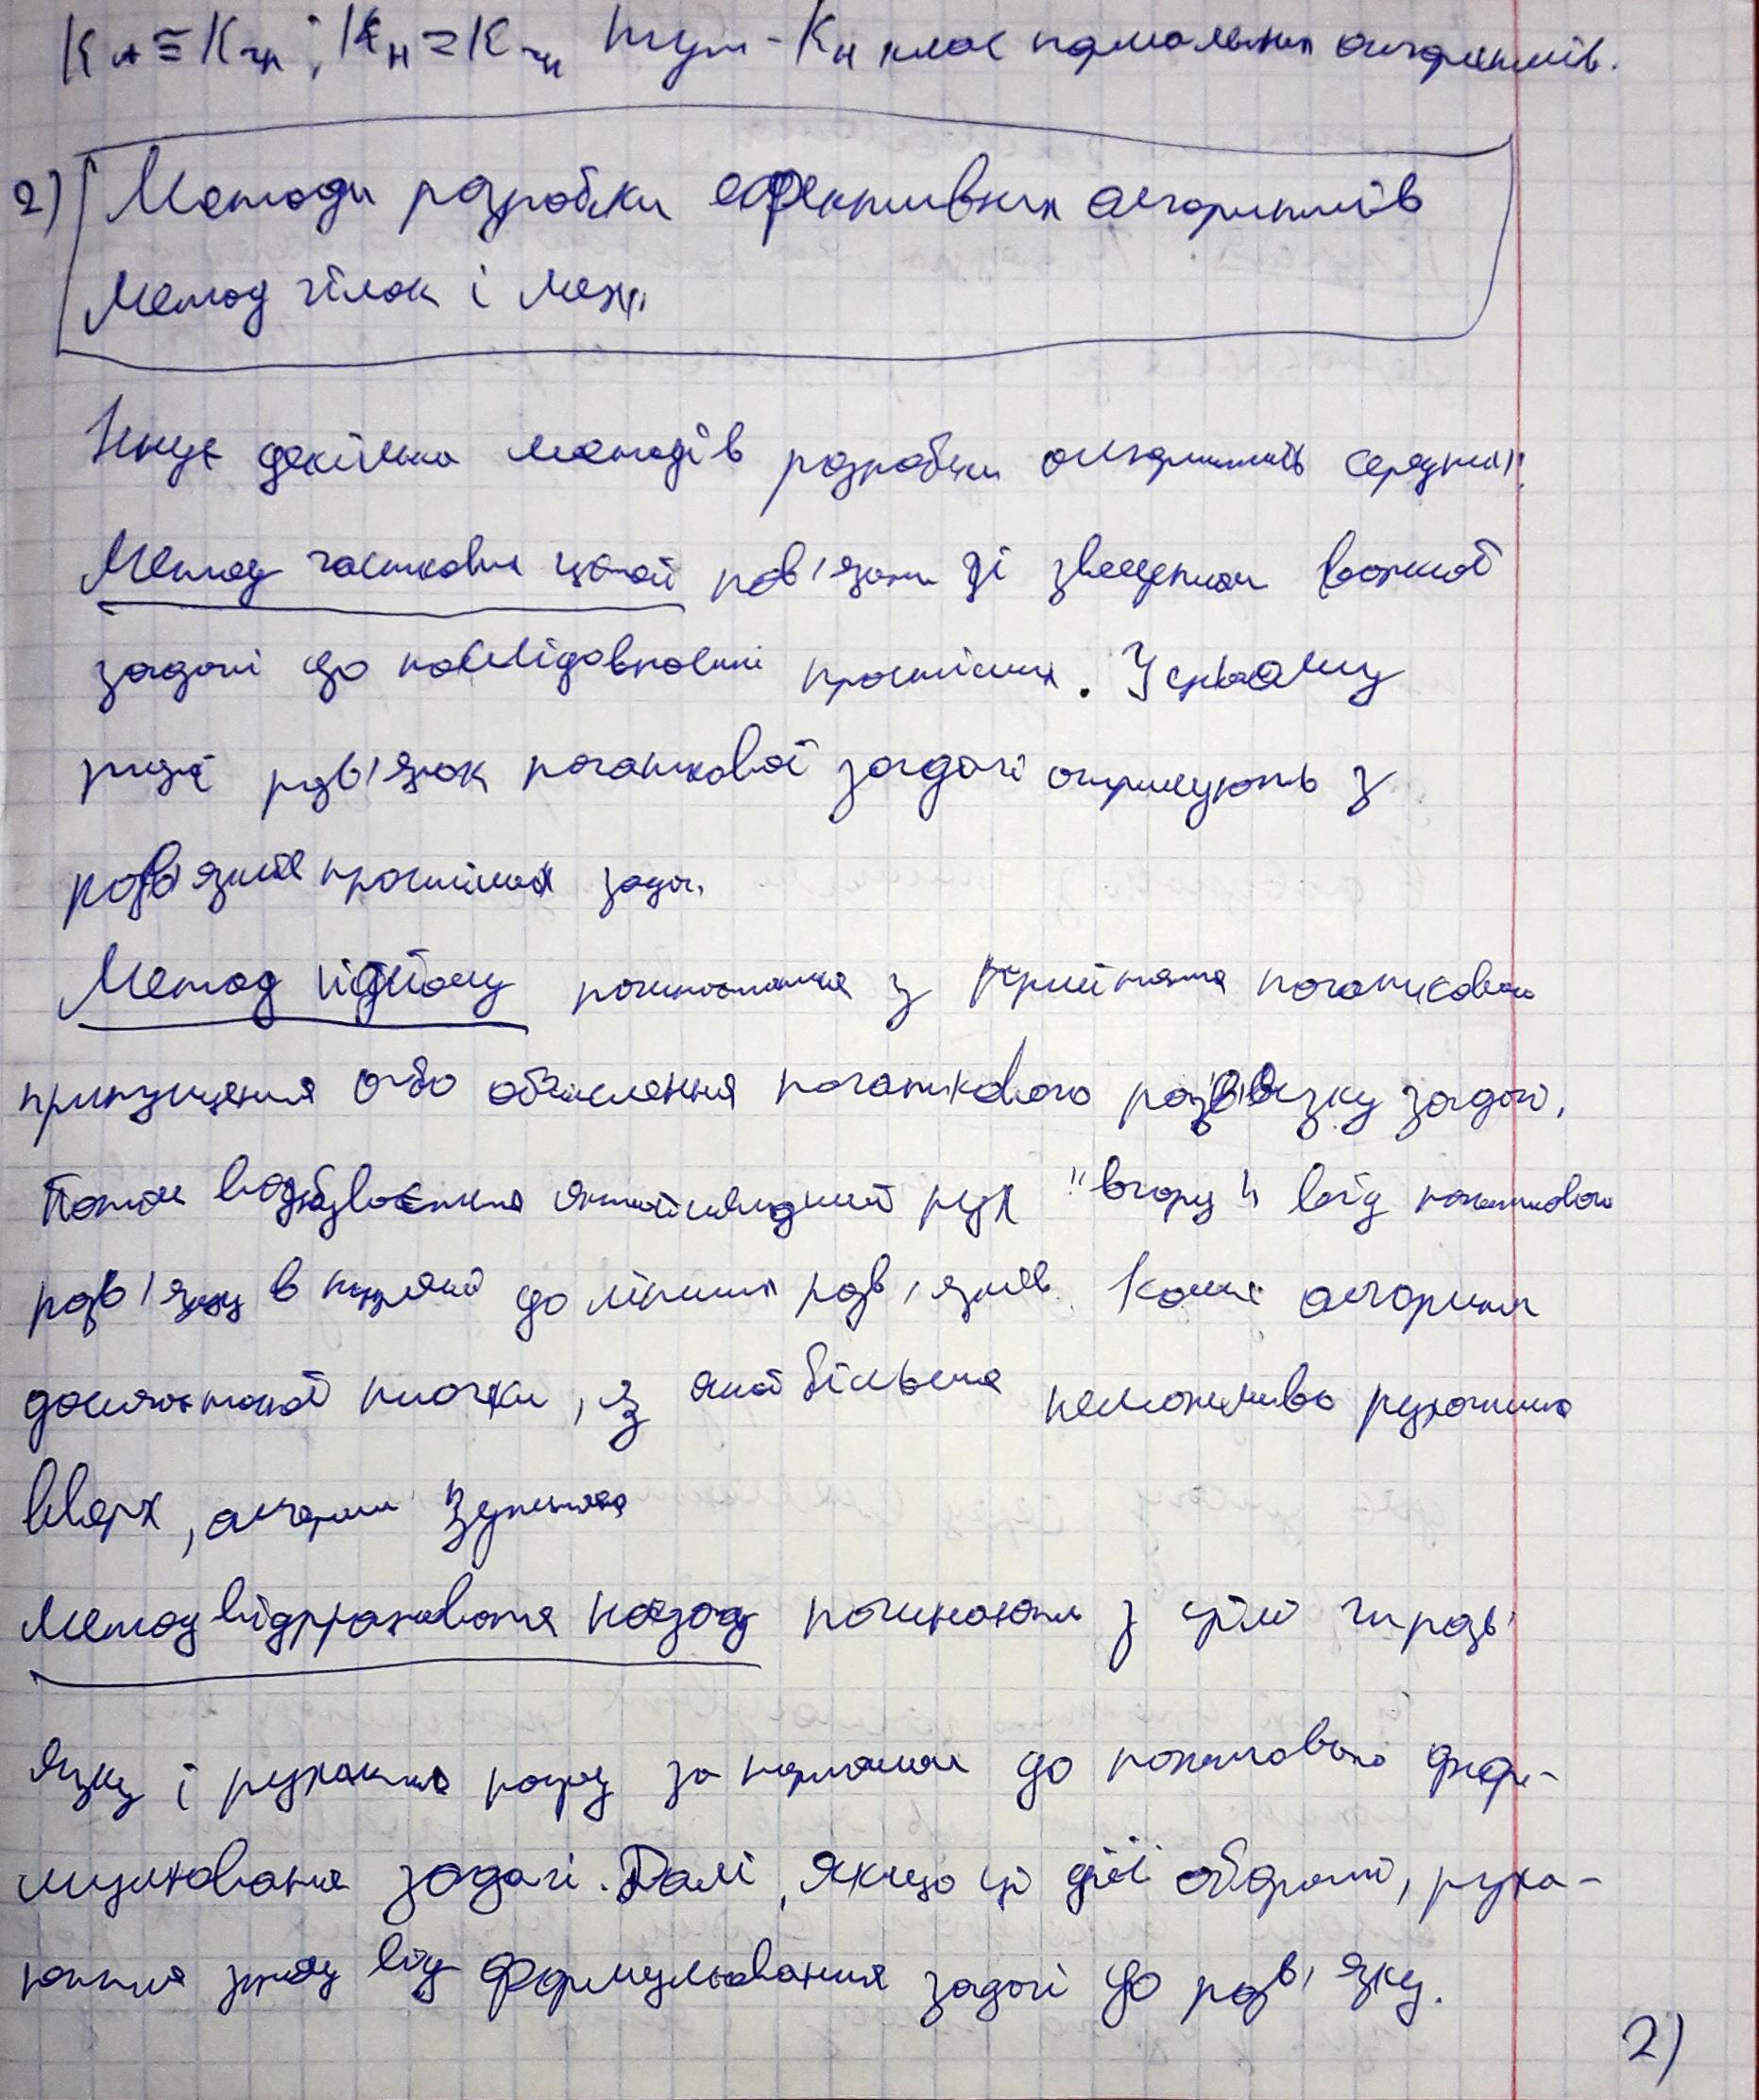 Kн ≡ Kчн; Kн = Kчн тут - Kн клас нормальних алгоритмів.
2) Методи розробки ефективних алгоритмів
Метод гілок і меж
Існує декілька методів розробки алгоритмів серед них:
Метод часткових цілей пов'язан зі зведенням важкої
задачі до послідовності простіших. У цьому
разі розв'язок початкової задачі отримують з
розв'язків простіших задач.
Метод підйому починається з прийняття початкового
припущення або обчислення початкового розв'язку задачі.
Потім відбувається якнайшвидший рух "вгору" від початкового
розв'язку в напрямі до ліпших розв'язків. Коли алгоритм
досягає такої точки, з якої більше неможливо рухатися
вверх, алгоритм зупиняється
Метод відпрацювання назад починають з цілі чи розв'
язку і рухаються назад за напрямом до початкового фор-
мулювання задачі. Далі, якщо ці дії оборотні, руха-
ються знову від формулювання задачі до розв'язку.
2)